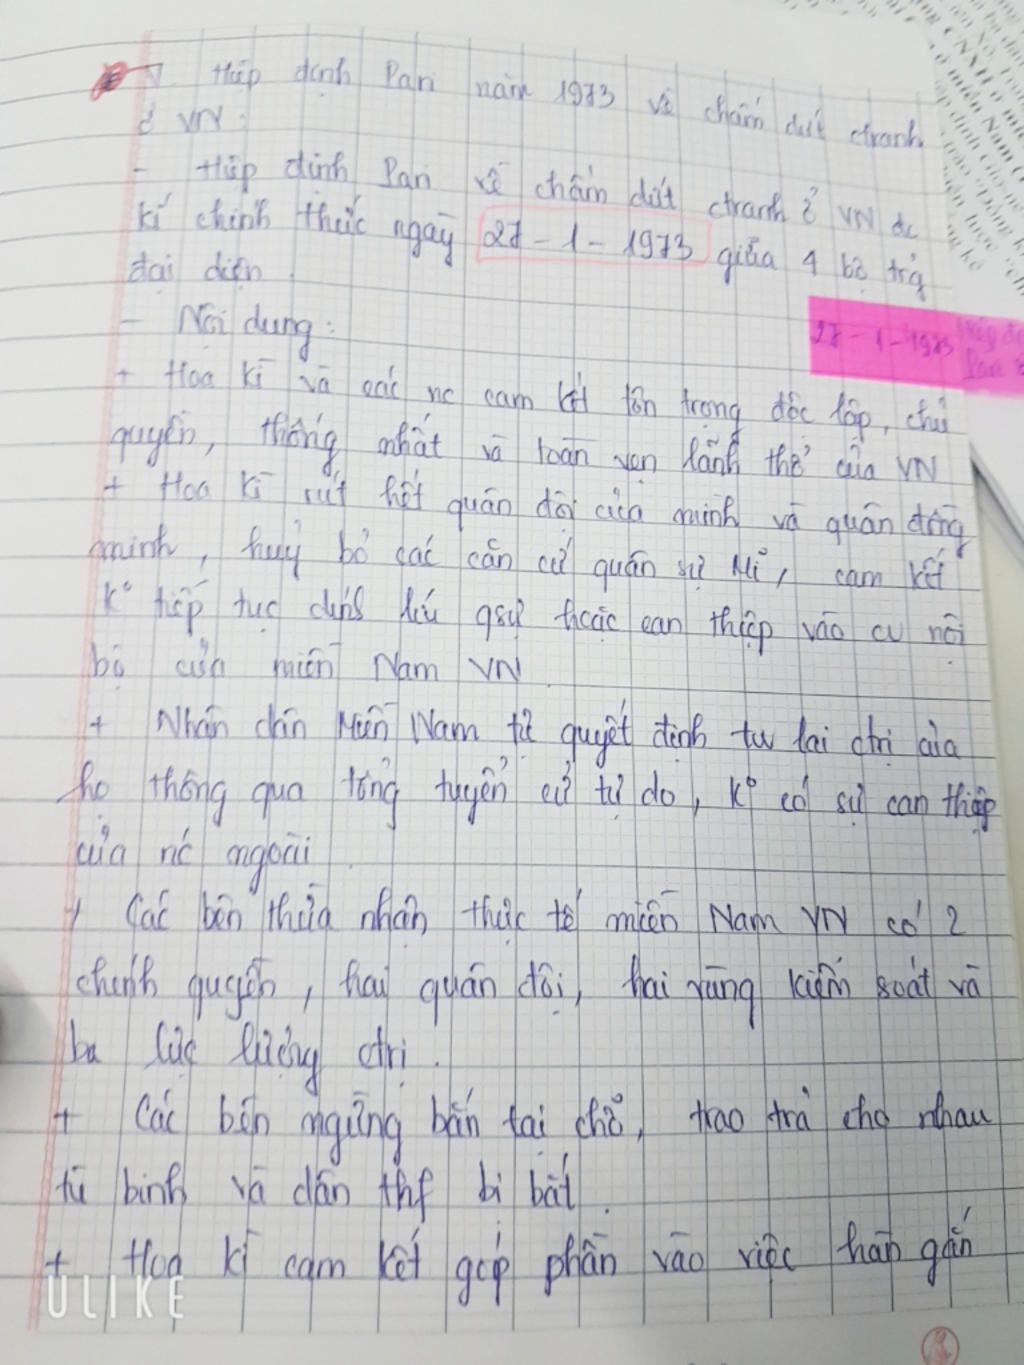 V. Hiệp định Pari năm 1973 về chấm dứt ctranh
ở VN:
- Hiệp định Pari về chấm dứt ctranh ở VN đc
kí chính thức ngày 27-1-1973 giữa 4 bộ trg
đại diện.
- Nội dung:
27-1-1973
+ Hoa Kì và các nc cam kết tôn trọng độc lập, chủ
quyền, thống nhất và toàn vẹn lãnh thổ của VN
+ Hoa Kì rút hết quân đội của mình và quân đồng
minh, huỷ bỏ các căn cứ quân sự Mĩ, cam kết
K° tiếp tục dính líu qsự hoặc can thiệp vào cv nội
bộ của miền Nam VN.
+ Nhân dân Miền Nam tự quyết định tw lai ctrị của
họ thông qua tổng tuyển cử tự do, K° có sự can thiệp
của nc ngoài.
+ Các bên thừa nhận thực tế miền Nam VN có 2
chính quyền, hai quân đội, hai vùng kiểm soát và
ba lực lượng ctrị.
+ Các bên ngừng bắn tại chỗ, trao trả cho nhau
tù binh và dân thg bị bắt.
+ Hoa Kì cam kết góp phần vào việc hàn gắn
ULIKE